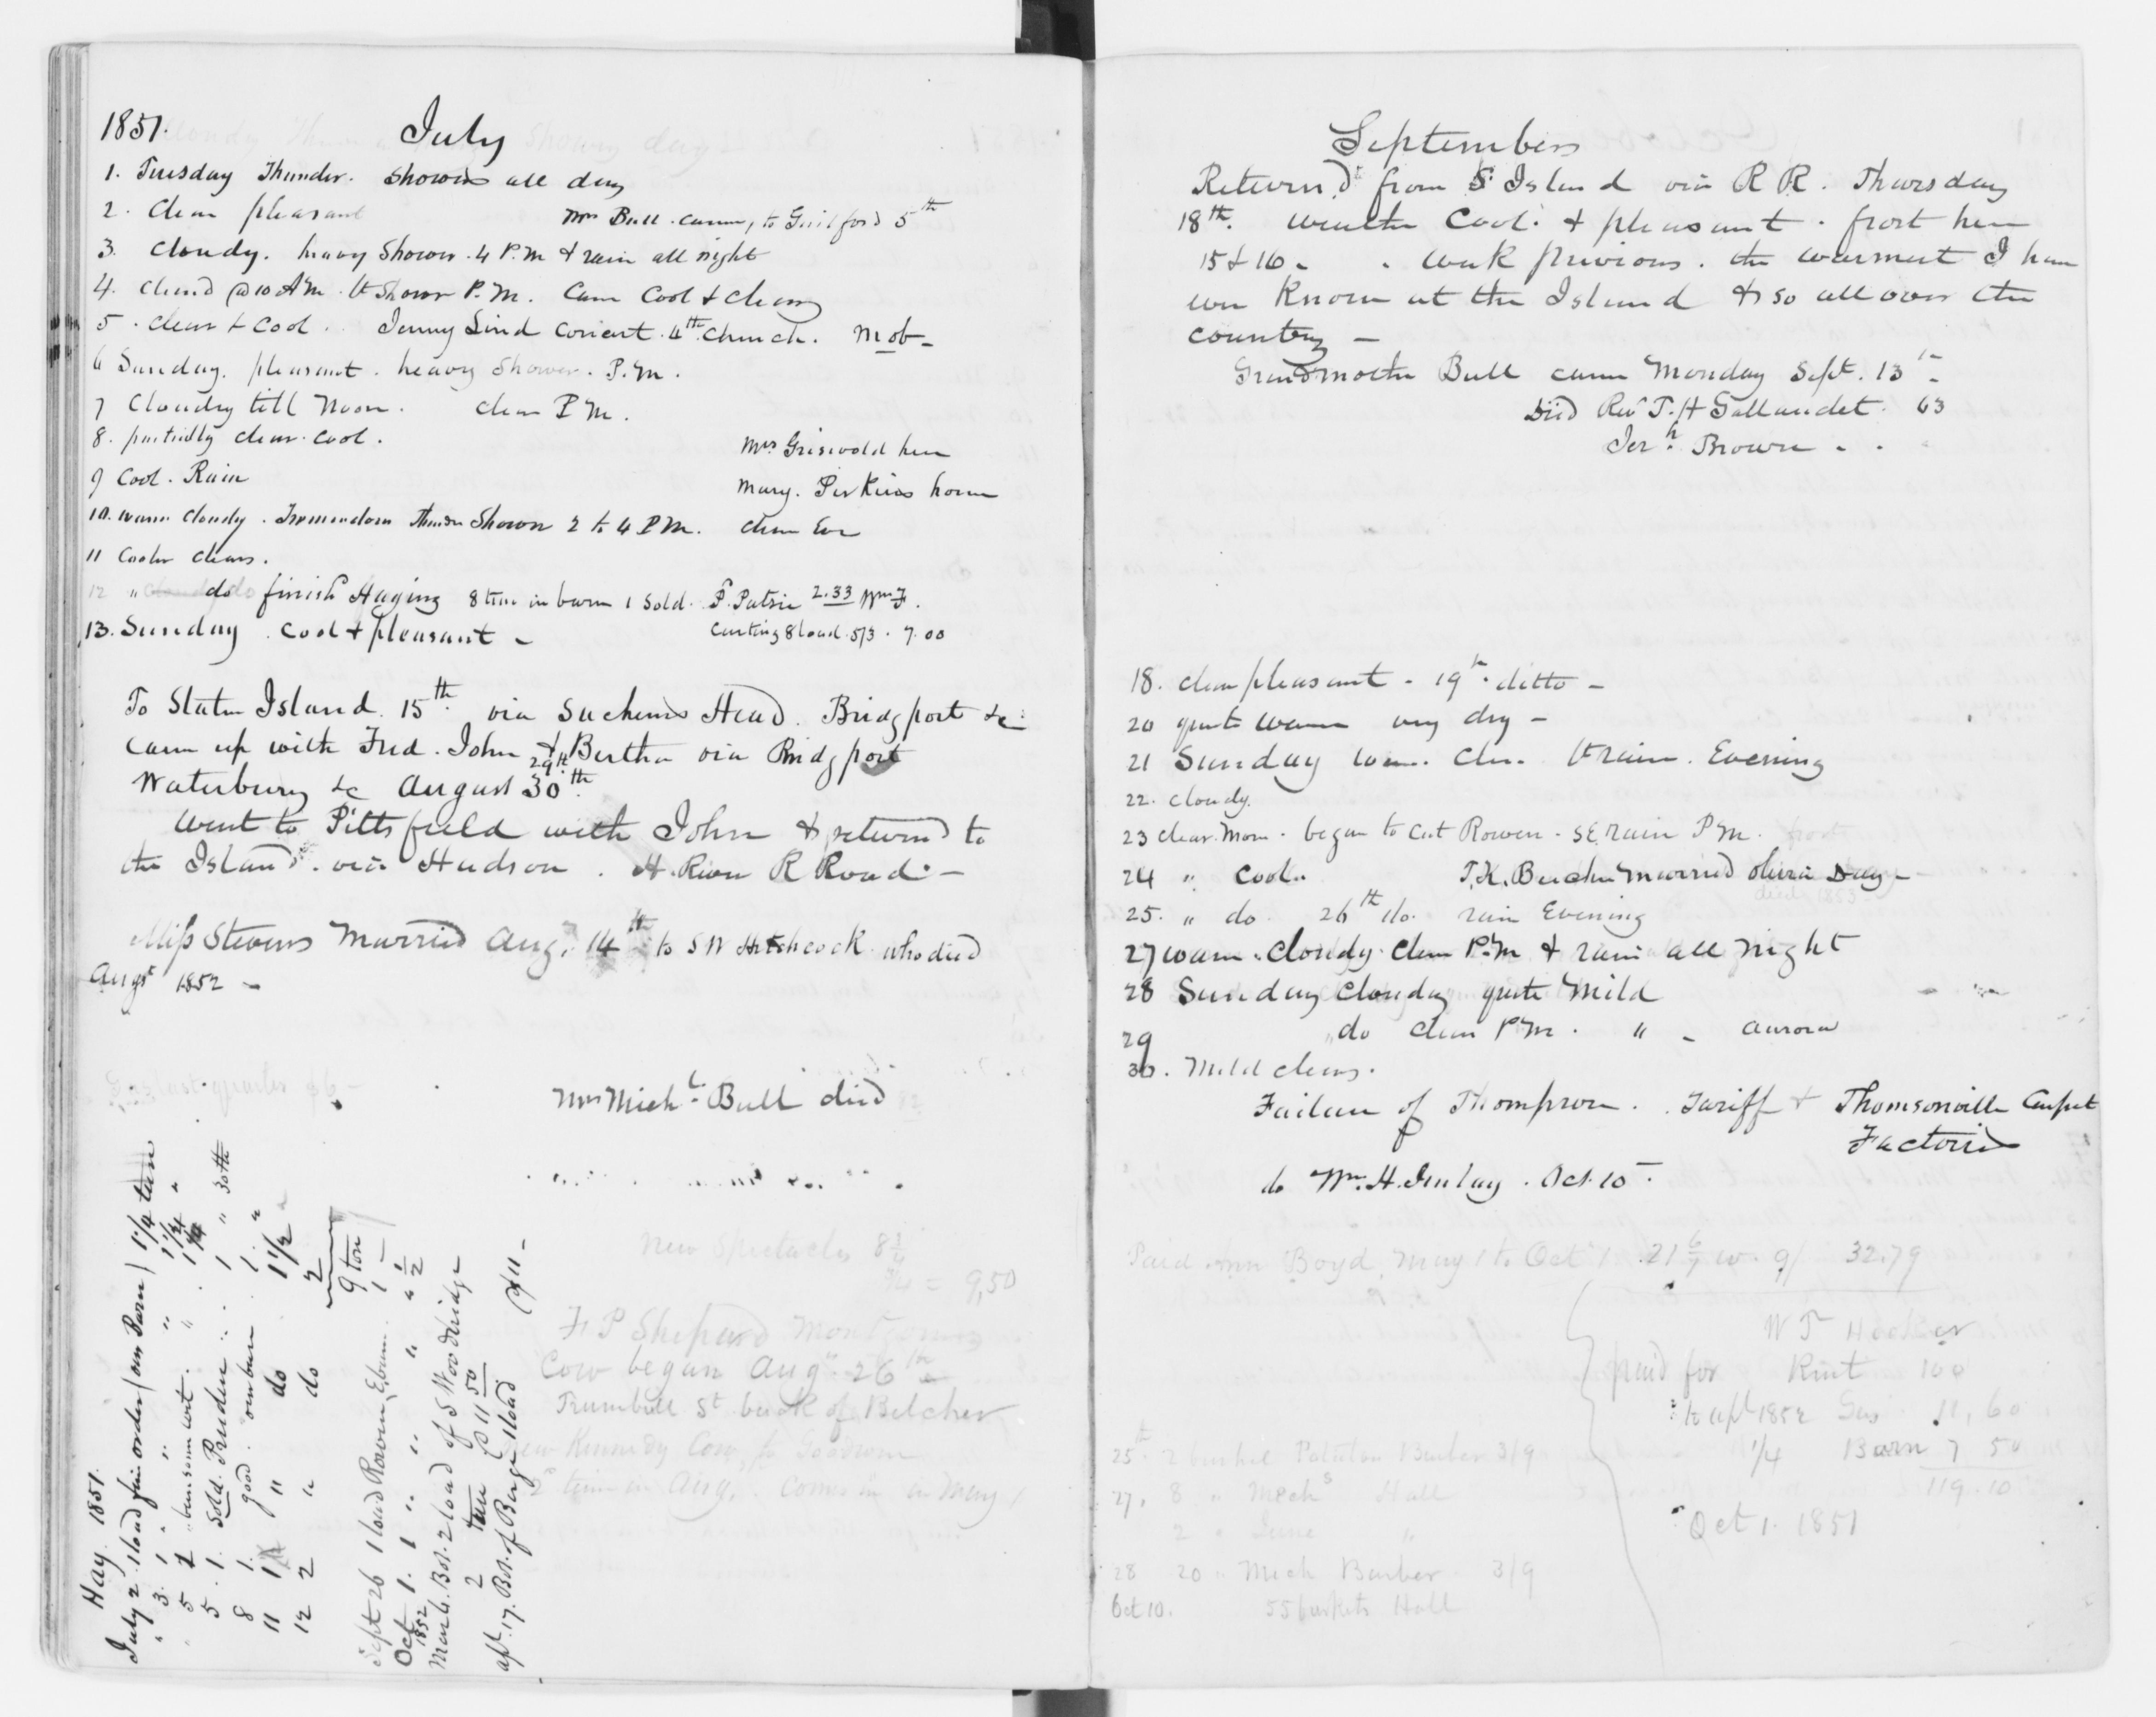 1851. July
1. Tuesday Thunder. Showers all day
2. Clear pleasant Mrs Bull came, to Guilford 5th
3. Cloudy. heavy Shower. 4 P.M & rain all night
4. Cleared @ 10 AM. lt Shower P.M. Came Cool & Clear
5. Clear & Cool. Jenny Lind Concert. 4th Church. Mob-
6 Sunday. pleasant. heavy Shower. P.M.
7 Cloudy till Noon. Clear P M.
8. partially clear. cool.
Mrs Griswold here
9 Cool. Rain
Mary. Perkins home
10. warm cloudy. Tremendous Thunder Shower 2 to 4 P M. Clear Eve
11 Cooler clear.
12 " do finish Haying 8 tons in barn 1 Sold. P. Patric 2.33 Wm F.
13. Sunday. Cool & pleasant -
Carting 8 load. 5/3. 7.00
To Staten Island 15th via Sachems Head. Bridgport &c
Came up with Fred. John & Bertha via Bridgport
29th
Waterbury &c August 30th
Went to Pittsfield with John & returned to
the Island. via Hudson. H. River R Road. -
Miss Stevens Married Aug. 14th to S W Hitchcock who died
Augst 1852 -
Gas last quarter $6 -
Mrs Michl Bull died
New Spectacles
= 9,50
F P Shepard
Cow began Augt 26th
Trumbull St back of Belcher
Kennedy Cow to Goodwin
time in Aug. Comes in in May
Hay. 1851.
July 2. 1 load fair order (our Barn) 1 1/4 ton
" 3. 1 " " 1 1/4 "
5 1 "
5. 1. Sold. Prudens 1 " 30th
8 1. good. our barn 1. "
11 1 " do 1 1/2 "
12 2 " do 2
9 ton
Sept 26 1 load Rowen, E. barn. 1 -
Oct 1. 1 " " " 1/2
1852
March. Bot. 2 load of S Woodridge
2 tons @ 11 50
apl. 17. Bot. of Burge 1 load @ 11 -
September
Returnd from S. Island via R R. Thursday
18th. weather Cool. & pleasant. frost here
15 & 16. . Week previous. the warmest I have
ever known at the Island & so all over the
country -
Grandmother Bull came Monday Sept. 15 -
Died Revd T. H Gallaudet. 63
Jerh. Brown - -
18. clear pleasant - 19th ditto -
20 quite warm very dry -
21 Sunday warm. Clear. lt rain. Evening
22. cloudy.
23 clear. Morn. began to cut Rowen. SE rain P M.
24 " Cool. T. K. Beecher married Olivia Day -
died 1853
25. " do. 26th do. rain Evening
27 warm. Cloudy. Clear P.M & rain all night
28 Sunday Cloudy quite Mild
29 do clear P M. " - aurora
30. Mild clear.
Failure of Thompson. Tariff & Thomsonville Carpet
Factories
do Wm. H. Imlay. Oct. 10 -
Paid Ann Boyd, May 1 to Oct 1. 21 6/7 w. 9/ 32.79
W T Hooker
paid for Rent 100
to apl 1852 Gas 11,60
1/4 Barn 7 50
119.10
Oct 1. 1851
25th. 2 bushel Potatoes Barber 3/9
27. 8 " Mechs Hall
2 " June "
28 20 " Mech Barber 3/9
Oct 10. 55 baskets Hall